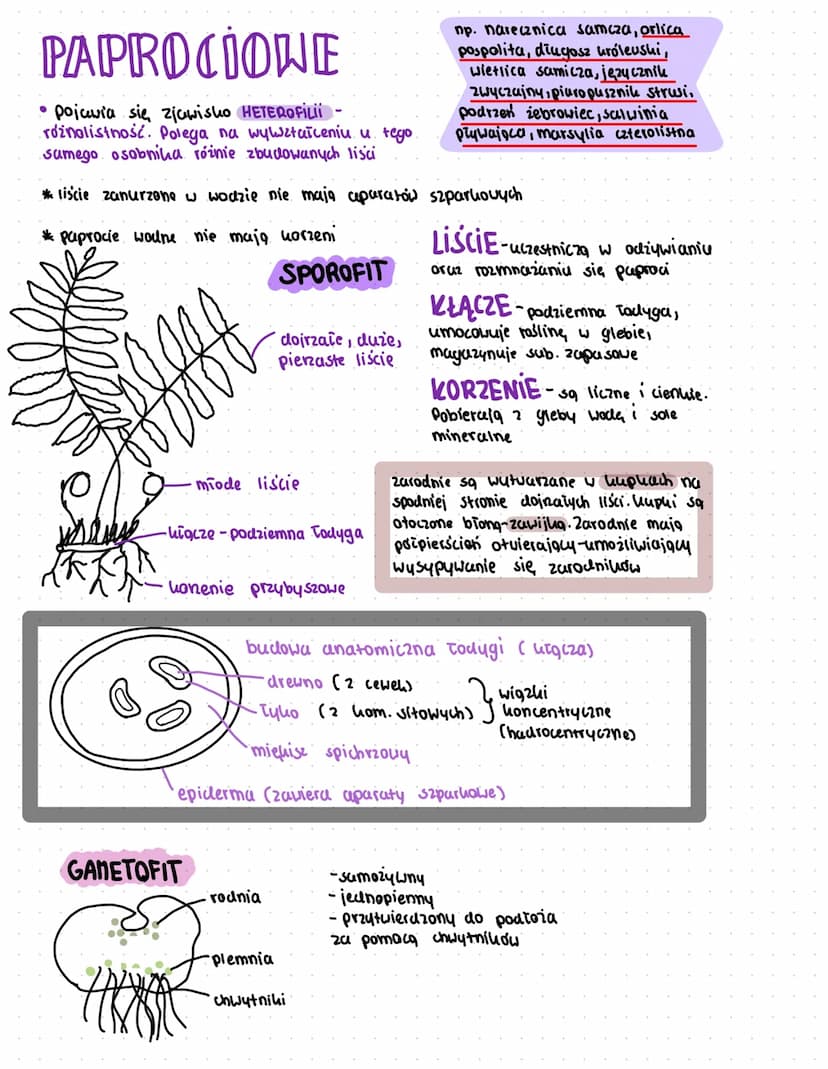 PAPROCIOWE
np. narecznica samcza, orlica
pospolita, długosz królewski,
wietlica samicza, języcznik
zwyczajny, pióropusznik strusi,
podrzeń żebrowiec, salwinia
pływająca, marsylia czterolistna
• pojawia się zjawisko HETEROFILII -
różnolistność. Polega na wykształceniu u tego
samego osobnika różnie zbudowanych liści
* liście zanurzone w wodzie nie mają aparatów szparkowych
* paprocie wodne nie mają korzeni
SPOROFIT
dojrzałe, duże,
pierzaste liście
młode liście
kłącze - podziemna łodyga
korzenie przybyszowe
LIŚCIE - uczestniczą w odżywianiu
oraz rozmnażaniu się paproci
KŁĄCZE - podziemna łodyga,
umocowuje roślinę w glebie,
magazynuje sub. zapasowe
KORZENIE - są liczne i cienkie.
Pobierają z gleby wodę i sole
mineralne
zarodnie są wytwarzane w kupkach na
spodniej stronie dojrzałych liści. Kupki są
otoczone błoną-zawijką. Zarodnie mają
półpierścień otwierający-umożliwiający
wysypywanie się zarodników
budowa anatomiczna łodygi (kłącza)
drewno (z cewek)
łyko (z kom. sitowych)
wiązki
koncentryczne
(hadrocentryczne)
miękisz spichrzowy
epiderma (zawiera aparaty szparkowe)
GAMETOFIT
rodnia
plemnia
chwytniki
-samożywny
- jednopienny
- przytwierdzony do podłoża
za pomocą chwytników